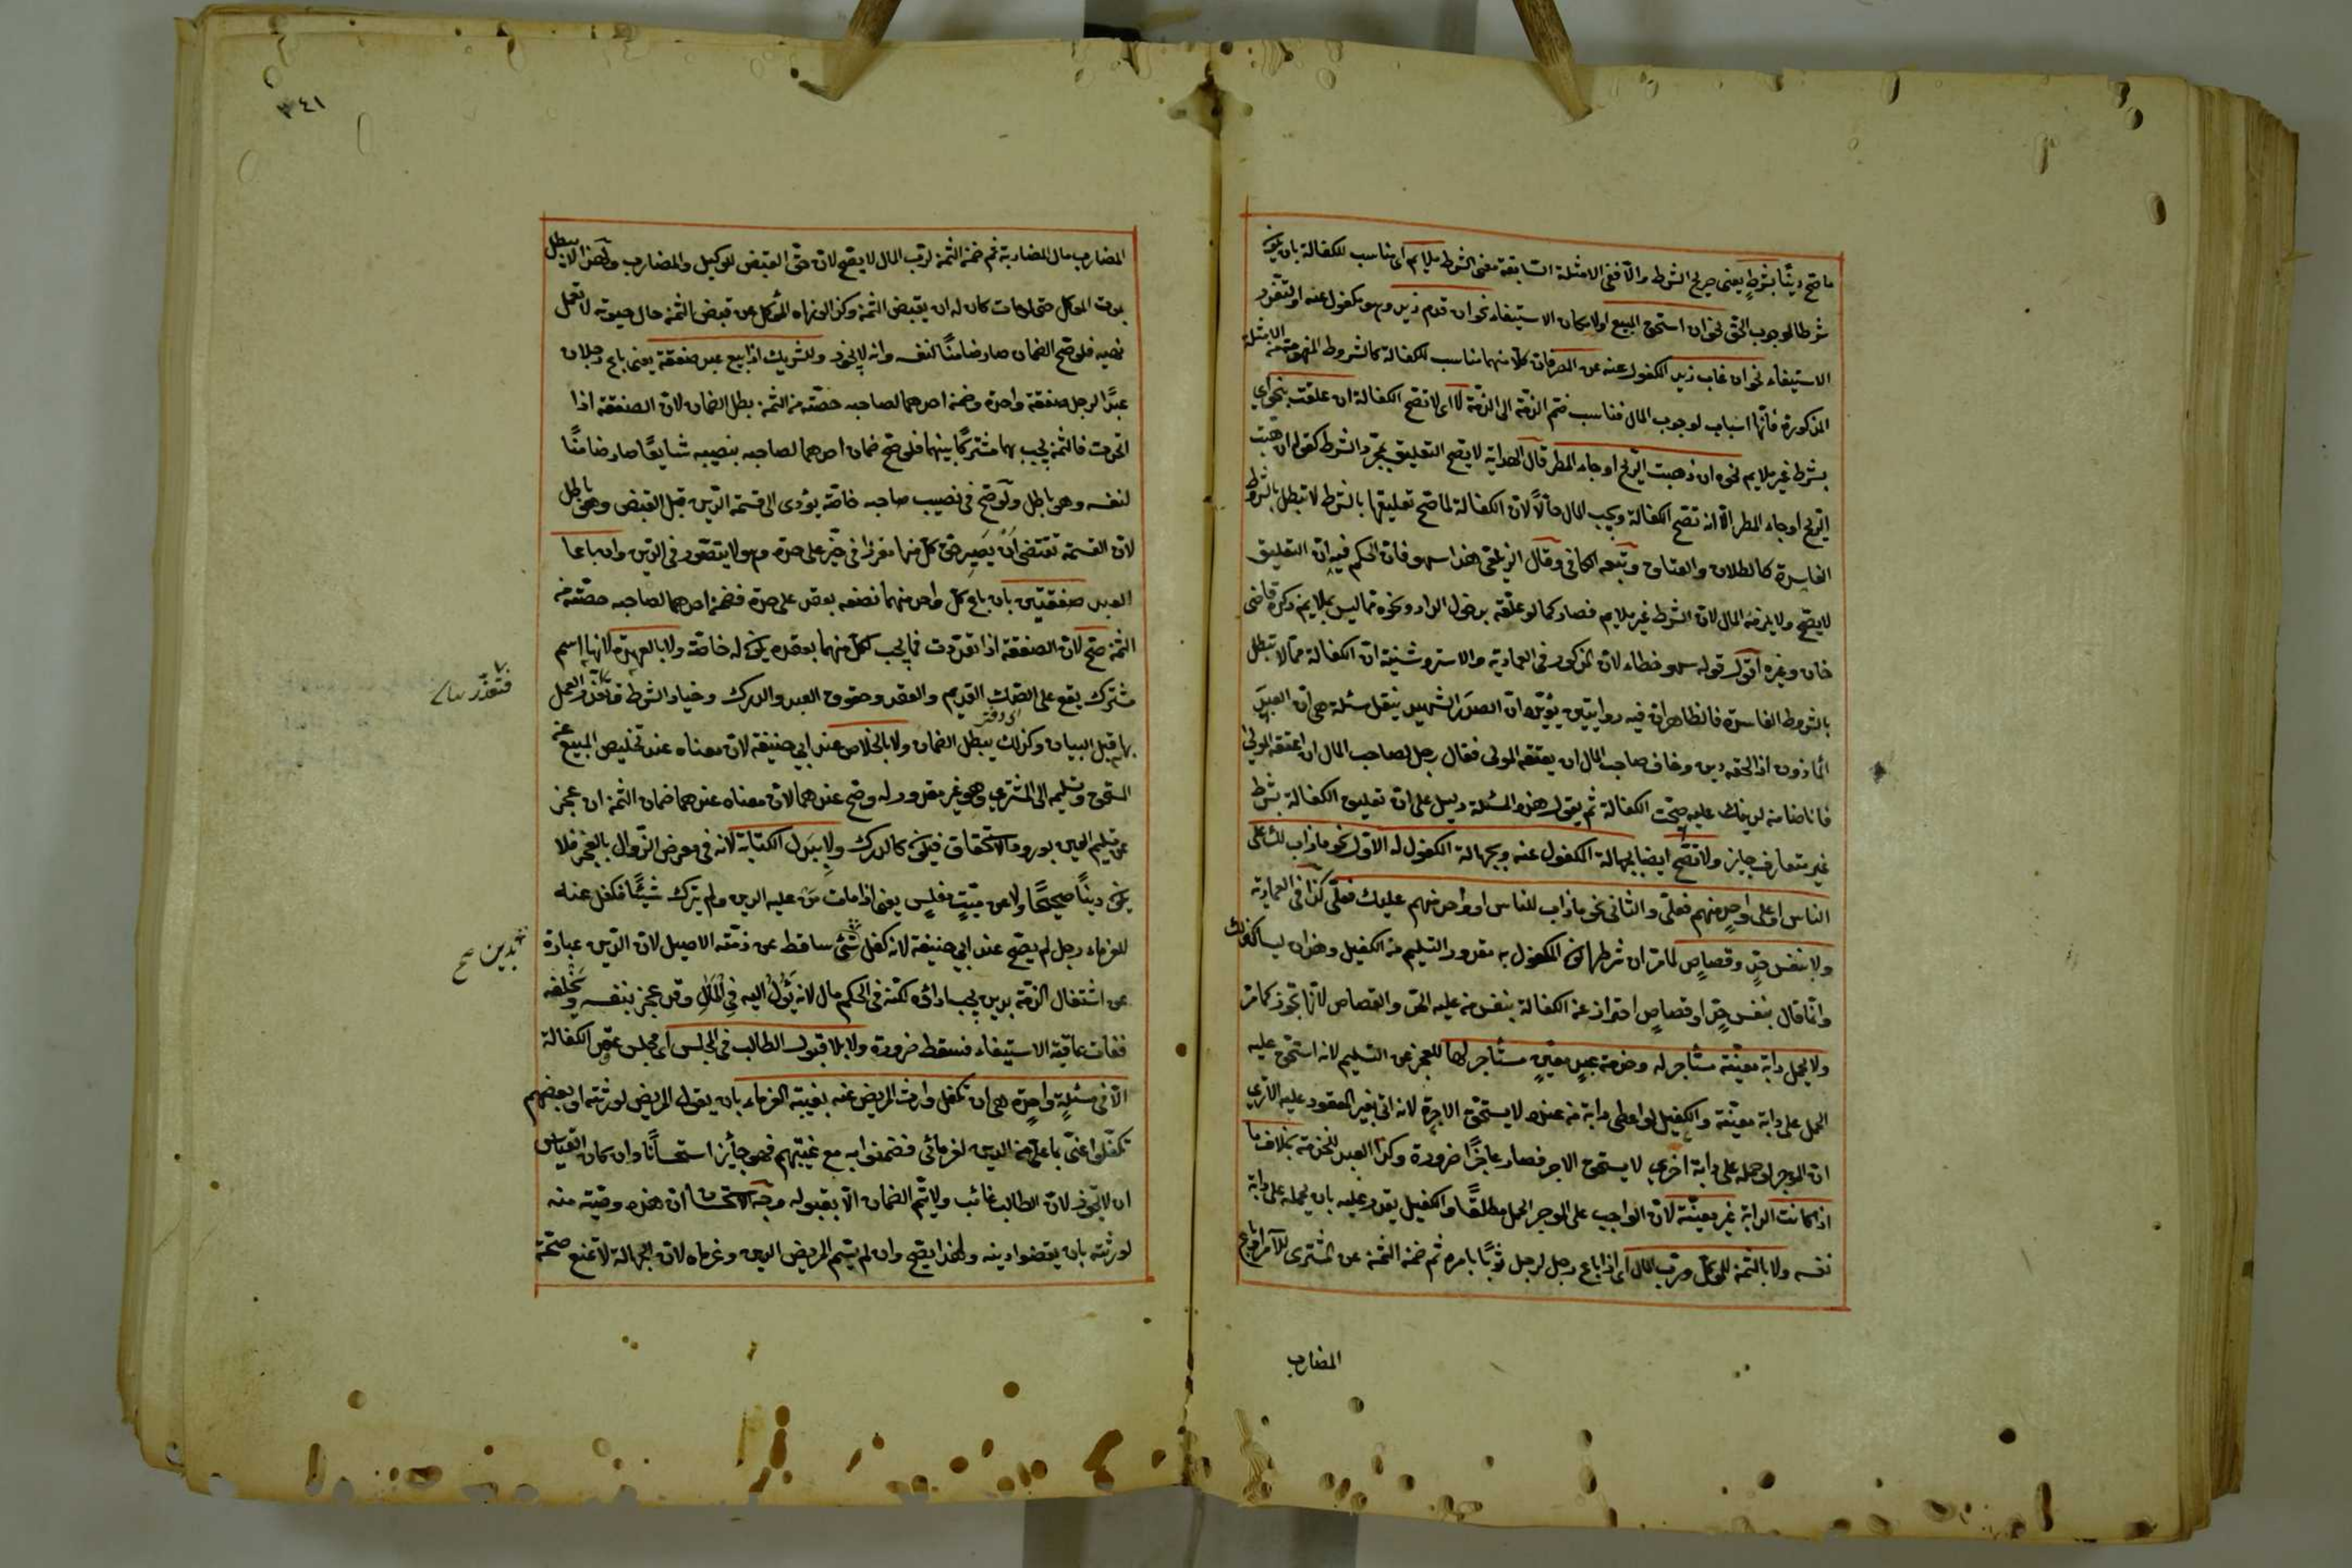 ما صح دينًا بشرطٍ يعنى صريح الشرط والا ففى الامثلة السابقة معنى الشرط ملايم اى مناسب للكفالة بان يكون
شرطا لوجوب الحق نحو ان استحق المبيع او لامكان الاستيفاء نحو ان قدم زيد وهو مكفول عنه او لتعذر
الاستيفاء نحو ان غاب زيد المكفول عنه عن المصر فان كلا منها مناسب للكفالة كالشروط المفهومة من الامثلة
المذكورة فانها اسباب لوجوب المال فناسب ضم الذمة الى الذمة لا اى لا تصح الكفالة ان علقت بنحو اي
بشرط غير ملايم نحو ان ذهبت الريح او جاء المطر قال الهداية لا يصح التعليق بمجرد الشرط كقوله ان هبت
الريح او جاء المطر الا انه تصح الكفالة ويجب المال حالاً لان الكفالة لما صح تعليقها بالشرط لا تبطل بالشروط
الفاسدة كالطلاق والعتاق وتبعه الكافى وقال الزيلعى هذا سهو فان الحكم فيه ان التعليق
لا يصح ولا يلزمه المال لان الشرط غير ملايم فصار كما لو علقه بدخول الدار ونحوه مما ليس بملايم ذكره قاضى
خان وغيره اقول قوله سهو خطاء لان المذكور فى العمادية والاستروشنية ان الكفالة مما لا تبطل
بالشروط الفاسدة فالظاهر ان فيه روايتين يؤيده ان الصدر الشهيد ينقل مسئلة هى ان العبد
المأذون اذا لحقه دين وخاف صاحب المال ان يعتقه المولى فقال رجل لصاحب المال ان اعتقه المولى
فانا ضامنه لدينك عليه صحت الكفالة ثم يقول هذه المسئلة دليل على ان تعليق الكفالة بشرط
غير متعارف جايز ولا تصح ايضا بجهالة المكفول عنه وبجهالة المكفول له الاول نحو ماذاب لك على
الناس او على واحد منهم فعلىّ والثانى نحو ماذاب للناس او واحد منهم عليك فعلىّ كذا فى العمادية
ولا بنفس حدٍ وقصاصٍ لما مر ان شرطها كون المكفول به مقدور التسليم من الكفيل وهذان ليسا كذلك
وانما قال بنفس حدٍ او قصاصٍ احتراز عن الكفالة بنفس من عليه الحد والقصاص لانها تجوز كما مر
ولا بحمل دابة معينة مستأجر له وخدمة عبدٍ معينٍ مستأجر لها للعجز عن التسليم لانه استحق عليه
الحمل على دابة معينة والكفيل لو اعطى دابة من عنده لا يستحق الاجرة لانه اتى بغير المعقود عليه الا ترى
ان الموجر لو حمله على دابة اخرى لا يستحق الاجر فصار عاجزًا ضرورة وكذا العبد للخدمة بخلاف ما
اذا كانت الدابة غير معينة لان الواجب على الموجر الحمل مطلقًا والكفيل يقدر عليه بان يحمله على دابة
نفسه ولا بالثمن للموكل ورب المال اى اذا باع رجل لرجل ثوبًا بامره ثم ضمن الثمن عن المشترى للآمر او باع
المضارب
٣٤١
المضارب مال المضاربة ثم ضمن الثمن لرب المال لا يصح لان حق القبض للوكيل والمضارب ولهذا لا يبطل
بموت الموكل حتى لو مات كان له ان يقبض الثمن وكذا لو نهاه الموكل عن قبض الثمن حال حيوته لا تعمل
نهيه فلو صح الضمان صار ضامنًا لنفسه وانه لا يجوز وللشريك اذا بيع عبد صفقة يعنى باع رجلان
عبدًا لرجل صفقة واحدة وضمن احدهما لصاحبه حصته من الثمن بطل الضمان لان الصفقة اذا
اتحدت فالثمن يجب لهما مشتركًا بينهما فلو صح ضمان احدهما لصاحبه بنصيبه شايعًا صار ضامنًا
لنفسه وهو باطل ولو صح فى نصيب صاحبه خاصة يؤدى الى قسمة الدين قبل القبض وهو باطل
لان القسمة تقتضى ان يصير حق كل منهما مفرزا فى حيز على حدة وهو لا يتصور فى الدين وان باعا
العبد صفقتين بان باع كل واحد منهما نصفه بعقد على حدة فضمن احدهما لصاحبه حصته من
الثمن صح لان الصفقة اذا تعددت فما يجب لكل منهما بعقده يكون له خاصة ولا بالعهدة لانها اسم
مشترك يقع على الصك القديم والعقد وحقوق العقد والدرك وخيار الشرط فتعذر العمل
فتعذر
بها قبل البيان وكذلك يبطل الضمان ولا بالخلاص عند ابى حنيفة لان معناه عنده تخليص المبيع عن
المستحق وتسليمه الى المشترى وهو غير مقدور له وصح عندهما لان معناه عندهما ضمان الثمن ان عجز
عن تسليم العين بورود الاستحقاق فيكون كالدرك ولا ببدل الكتابة لانه فى معرض الزوال بالعجز فلا
يكون دينًا صحيحًا ولا عن ميتٍ مفلسٍ يعنى اذا مات من عليه الدين ولم يترك شيئًا فكفل عنه
للغرماء رجل لم يصح عند ابى حنيفة لانه كفل شئ ساقط عن ذمته الاصيل لان الدين عبارة
بدين صح
عن اشتغال الذمة بدين يجب اداؤه لكنه فى الحكم مال لانه يؤل اليه فى المال وقد عجز بنفسه وبخلفه
ففات عاقبة الاستيفاء فسقط ضرورة ولا بلا قبول الطالب فى المجلس اى مجلس عقد الكفالة
الا فى مسئلةٍ واحدةٍ هى ان تكفل وارث المريض عنه بغيبة الغرماء بان يقول المريض لورثته او بعضهم
تكفلوا عنى بما علىّ من الدين لغرمائى فضمنوا به مع غيبتهم فهو جائز استحسانًا وان كان القياس
ان لا يجوز لان الطالب غائب ولا يتم الضمان الا بقبوله وجه الاستحسان ان هذه وصية منه
لورثته بان يقضوا دينه ولهذا يصح وان لم يسم المريض الدين وغرماه لان الجهالة لا تمنع صحة